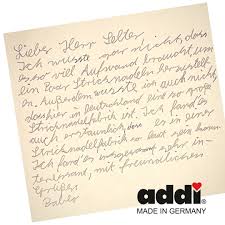 Lieber Herr Selter
Ich wusste gar nicht, dass
es so viel Aufwand braucht, um
ein Paar Stricknadeln herzustell
en. Ausserdem wusste ich auch nicht,
dass hier in Deutschland eine so große
Stricknadelfabrik ist. Ich fand es
auch erstaunlich, dass es in einer
Stricknadelfabrik so laut sein kann.
Ich fand es insgesamt sehr in-
teressant, mit freundlichen
Grüßen
addi
MADE IN GERMANY